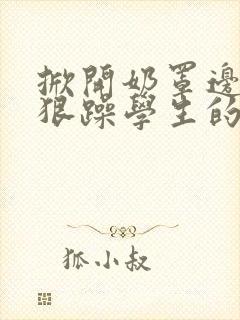 掀開奶罩邊
狠躁學生的
狐小叔